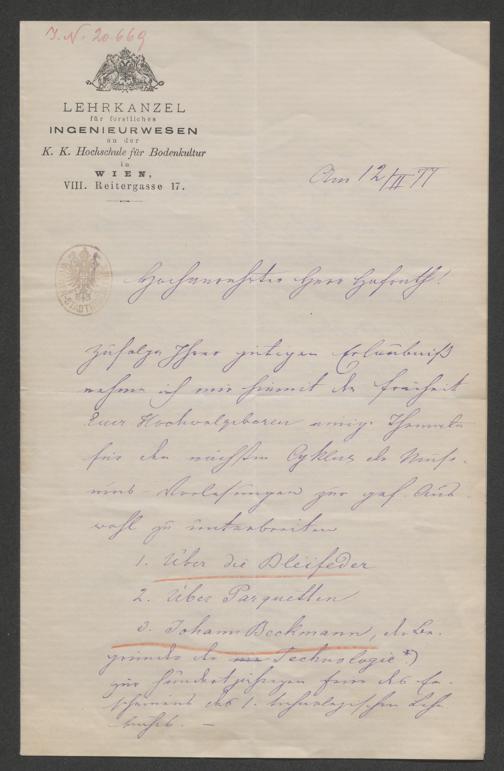 I. N. 20.669
LEHRKANZEL
für forstliches
INGENIEURWESEN
an der
K. K. Hochschule für Bodenkultur
in
WIEN,
VIII. Reitergasse 17.
Am 12/II 77
Hochverehrter Herr Hofrath!
Zufolge Ihrer gütigen Erlaubniß
nehme ich mir hiemit die Freiheit
Euer Hochwolgeboren einige Themata
für den nächsten Cyklus der Muse-
ums Vorlesungen zur gef. Aus
wahl zu unterbreiten
1. Über die Bleifeder
2. Über Parquetten
3. Johann Beckmann, der Be-
gründer der Technologie *)
zur hundertjährigen Feier des Er-
scheinens des 1. technologischen Lehr
buches. —